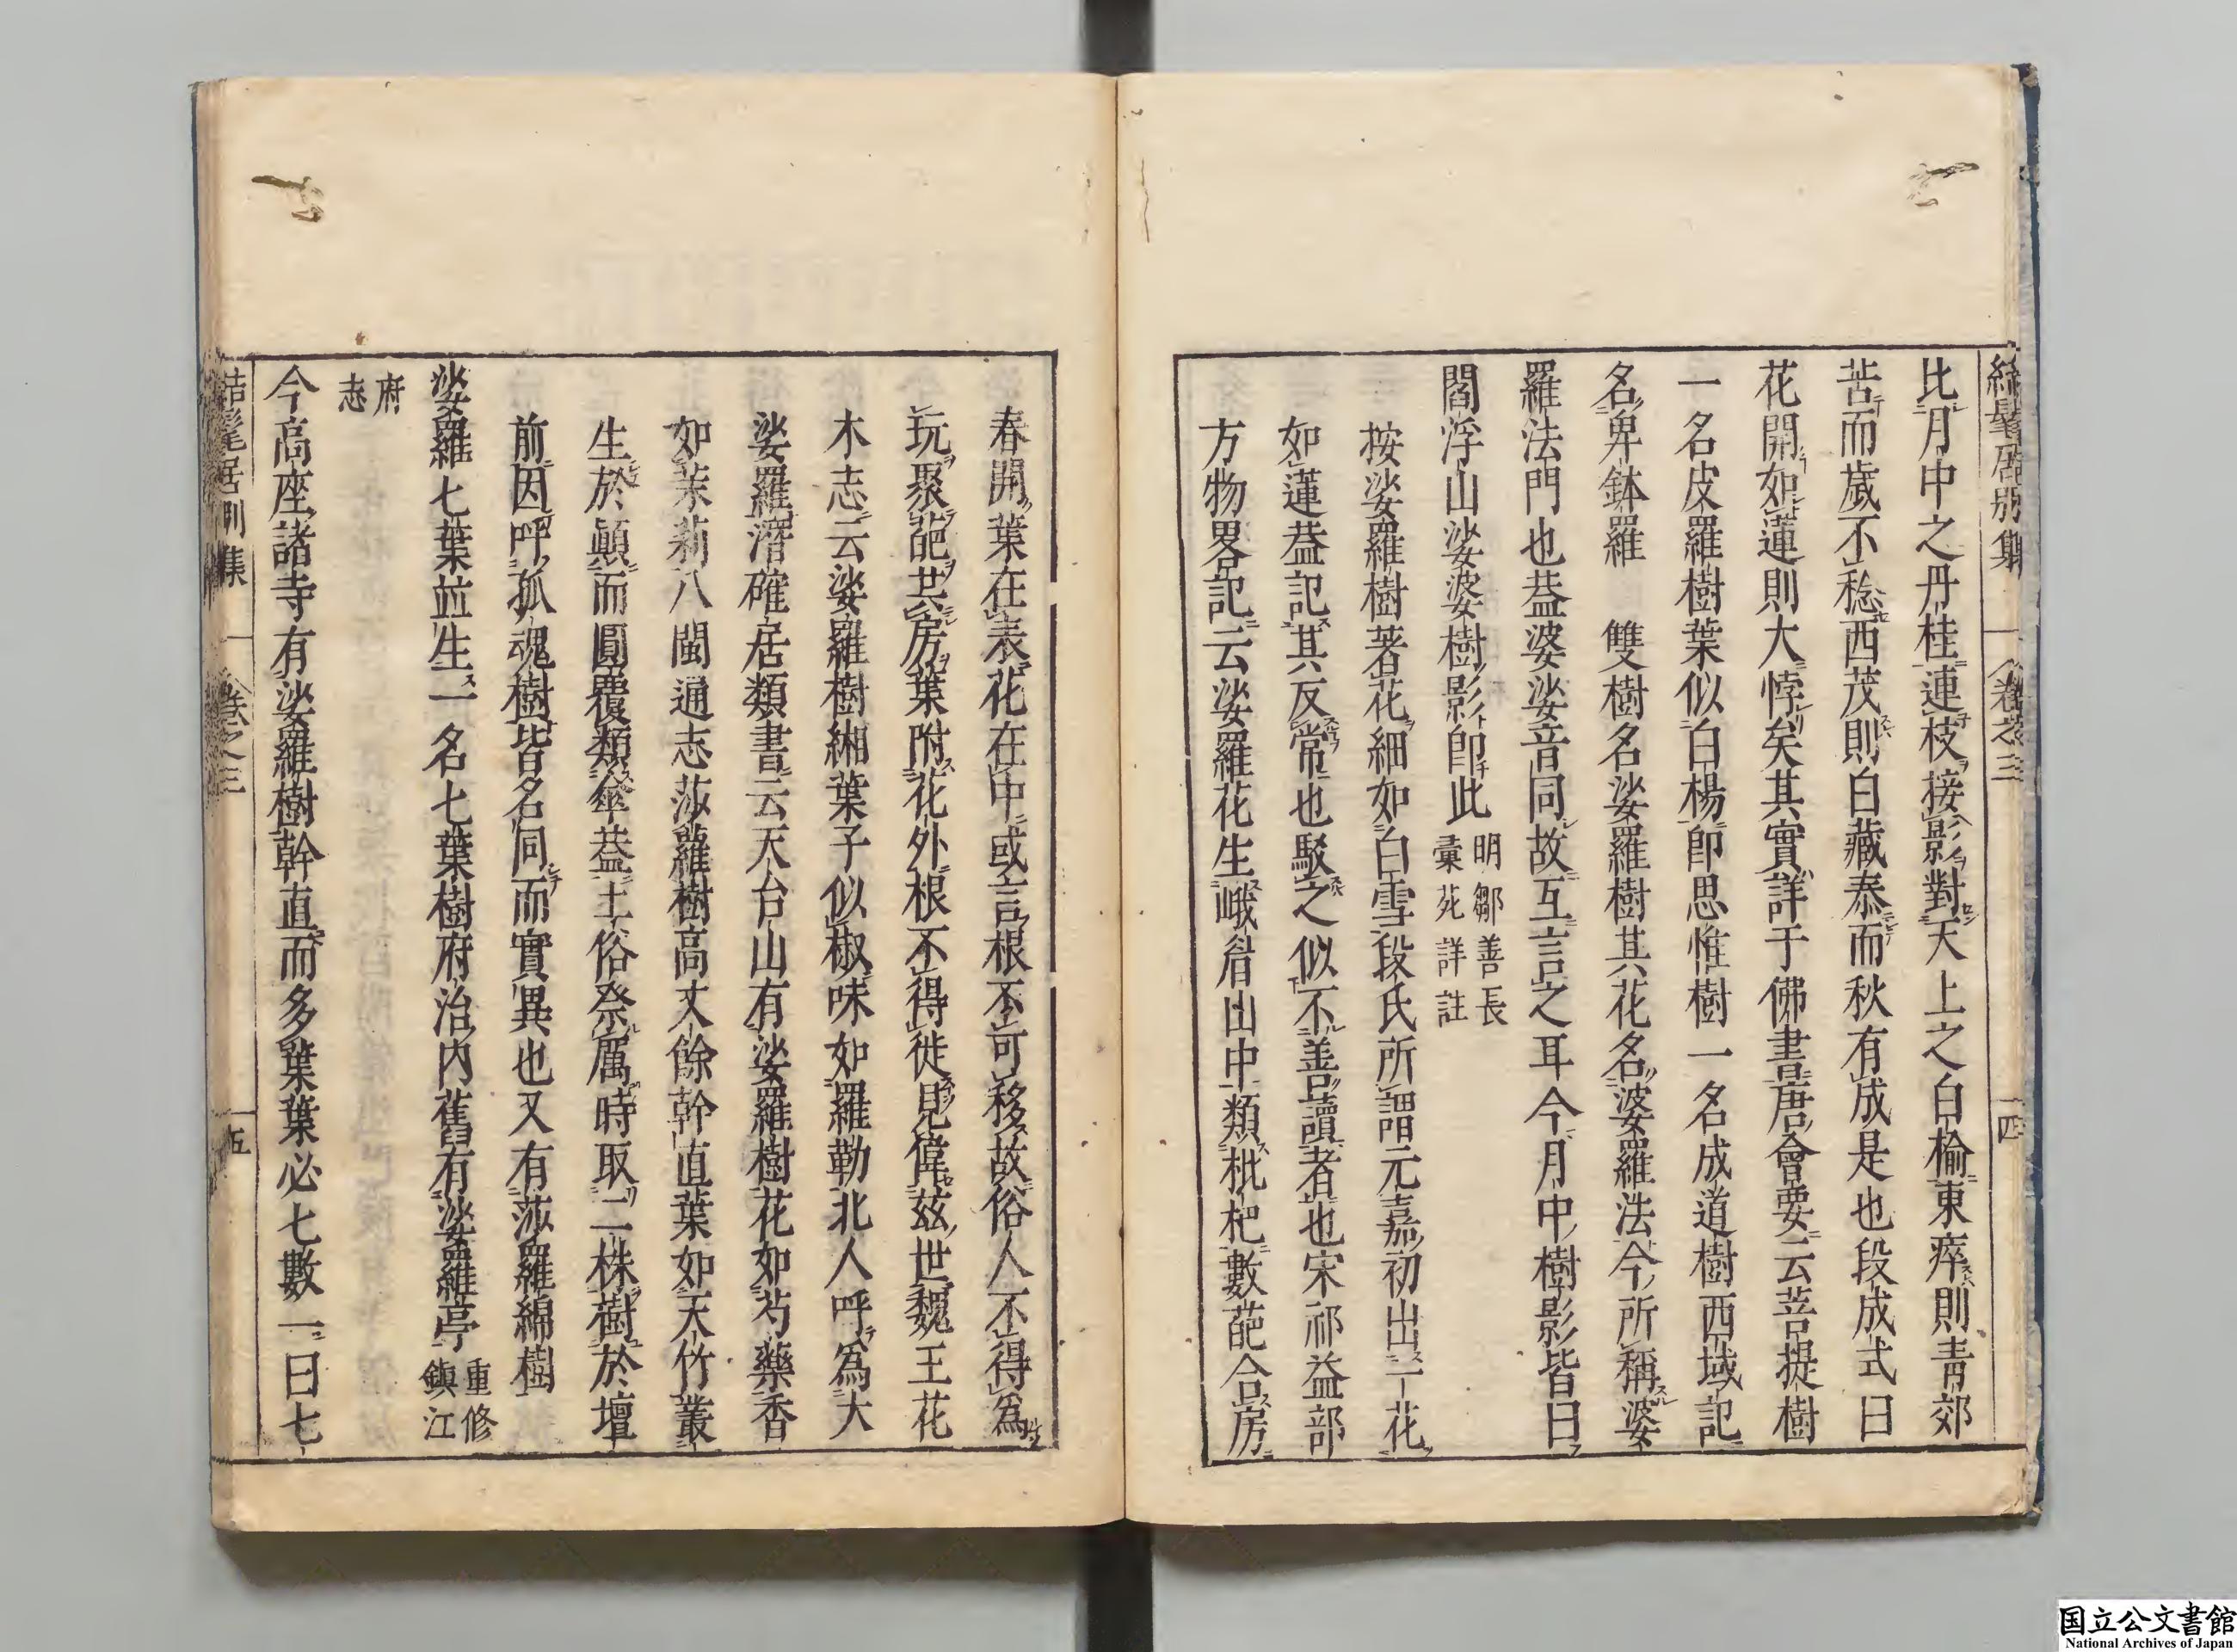 結髦居別集 卷之三 四
比月中之丹桂連枝接影對天上之白榆東瘁則青郊
苦而歲不稔西茂則白藏泰而秋有成是也段成式曰
花開如蓮則大悖矣其實詳于佛書唐會要云菩提樹
一名皮羅樹葉似白楊卽思惟樹一名成道樹西域記
名卑鉢羅 雙樹名娑羅樹其花名婆羅法今所稱婆
羅法門也葢婆娑音同故互言之耳今月中樹影皆曰
閻浮山娑婆樹影卽此
明鄒善長
彙苑詳註
按娑羅樹著花細如白雪段氏所謂元嘉初出一花
如蓮葢記其反常也駁之似不善讀者也宋祁益部
方物畧記云娑羅花生峨眉山中類枇杷數葩合房
春開葉在表花在中或言根不可移故俗人不得爲
玩聚葩共房葉附花外根不得徙見偉茲世魏王花
木志云娑羅樹緗葉子似椒味如羅勒北人呼爲大
娑羅潛確居類書云天台山有娑羅樹花如芍藥香
如茉莉八閩通志莎蘿樹高丈餘幹直葉如天竹叢
生於顚而圓覆類傘葢土俗祭厲時取二株樹於壇
前因呼孤魂樹皆名同而實異也又有莎羅綿樹
娑羅七葉並生一名七葉樹府治內舊有娑羅亭
重修
鎭江
府
志
今高座諸寺有娑羅樹幹直而多葉葉必七數一曰七
結髦居別集 卷之三 五
国立公文書館
National Archives of Japan